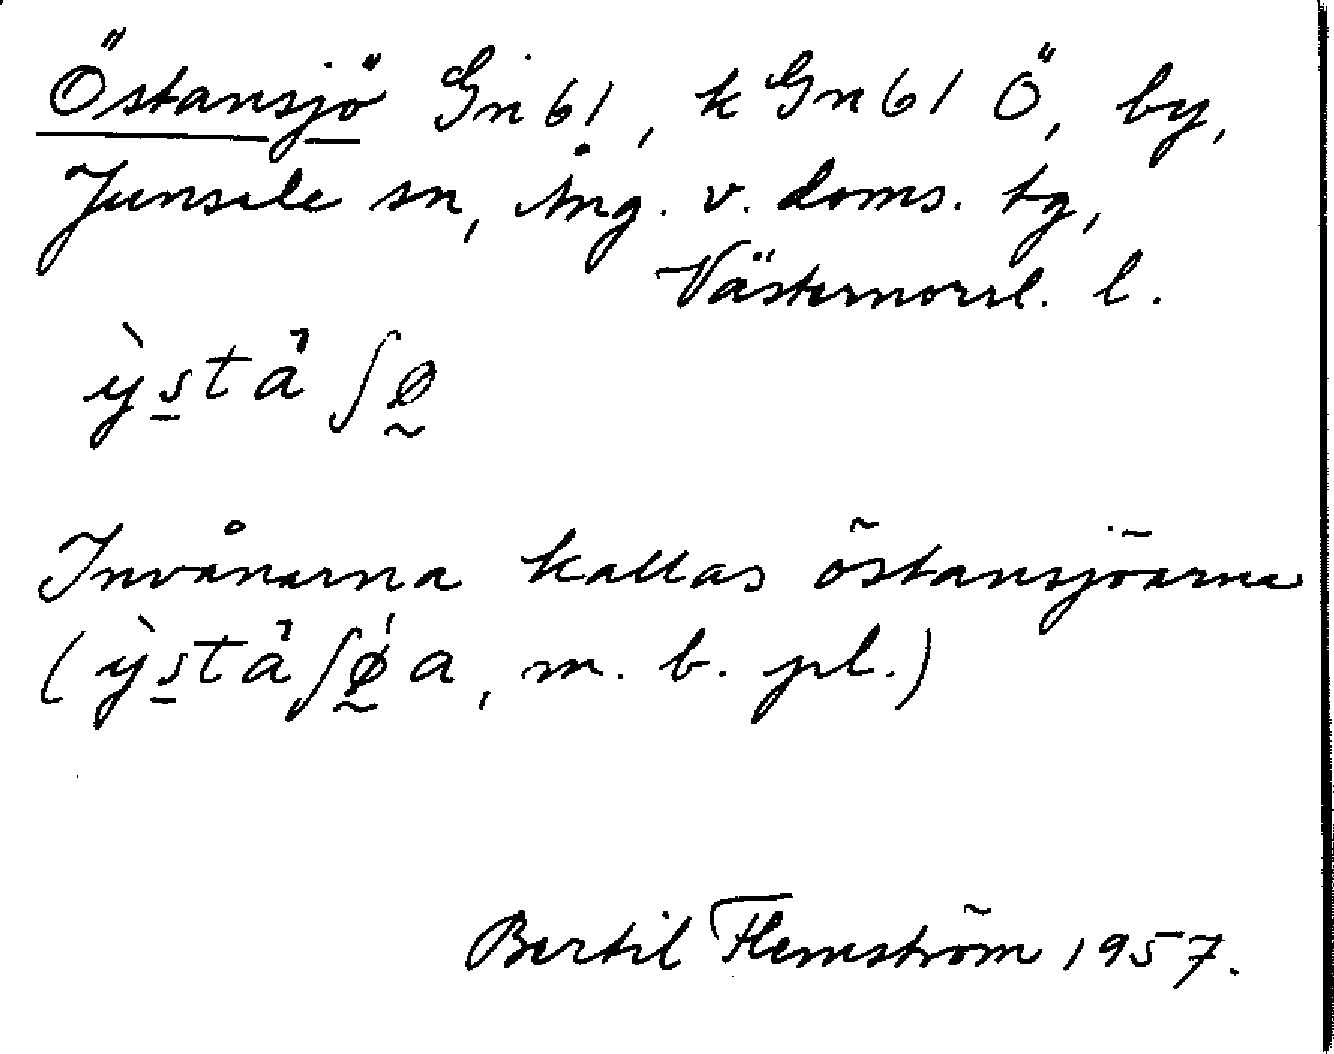 Östansjö Gn 61, k Gn 61 Ö, by,
Junsele sn, Ång. v. doms. tg,
Västernorrl. l.
ỳs̲tâʃø̰
Invånarna kallas östansjöarna
(ỳs̲tâʃǿ̰a, m. b. pl.)
Bertil Flemström 1957.